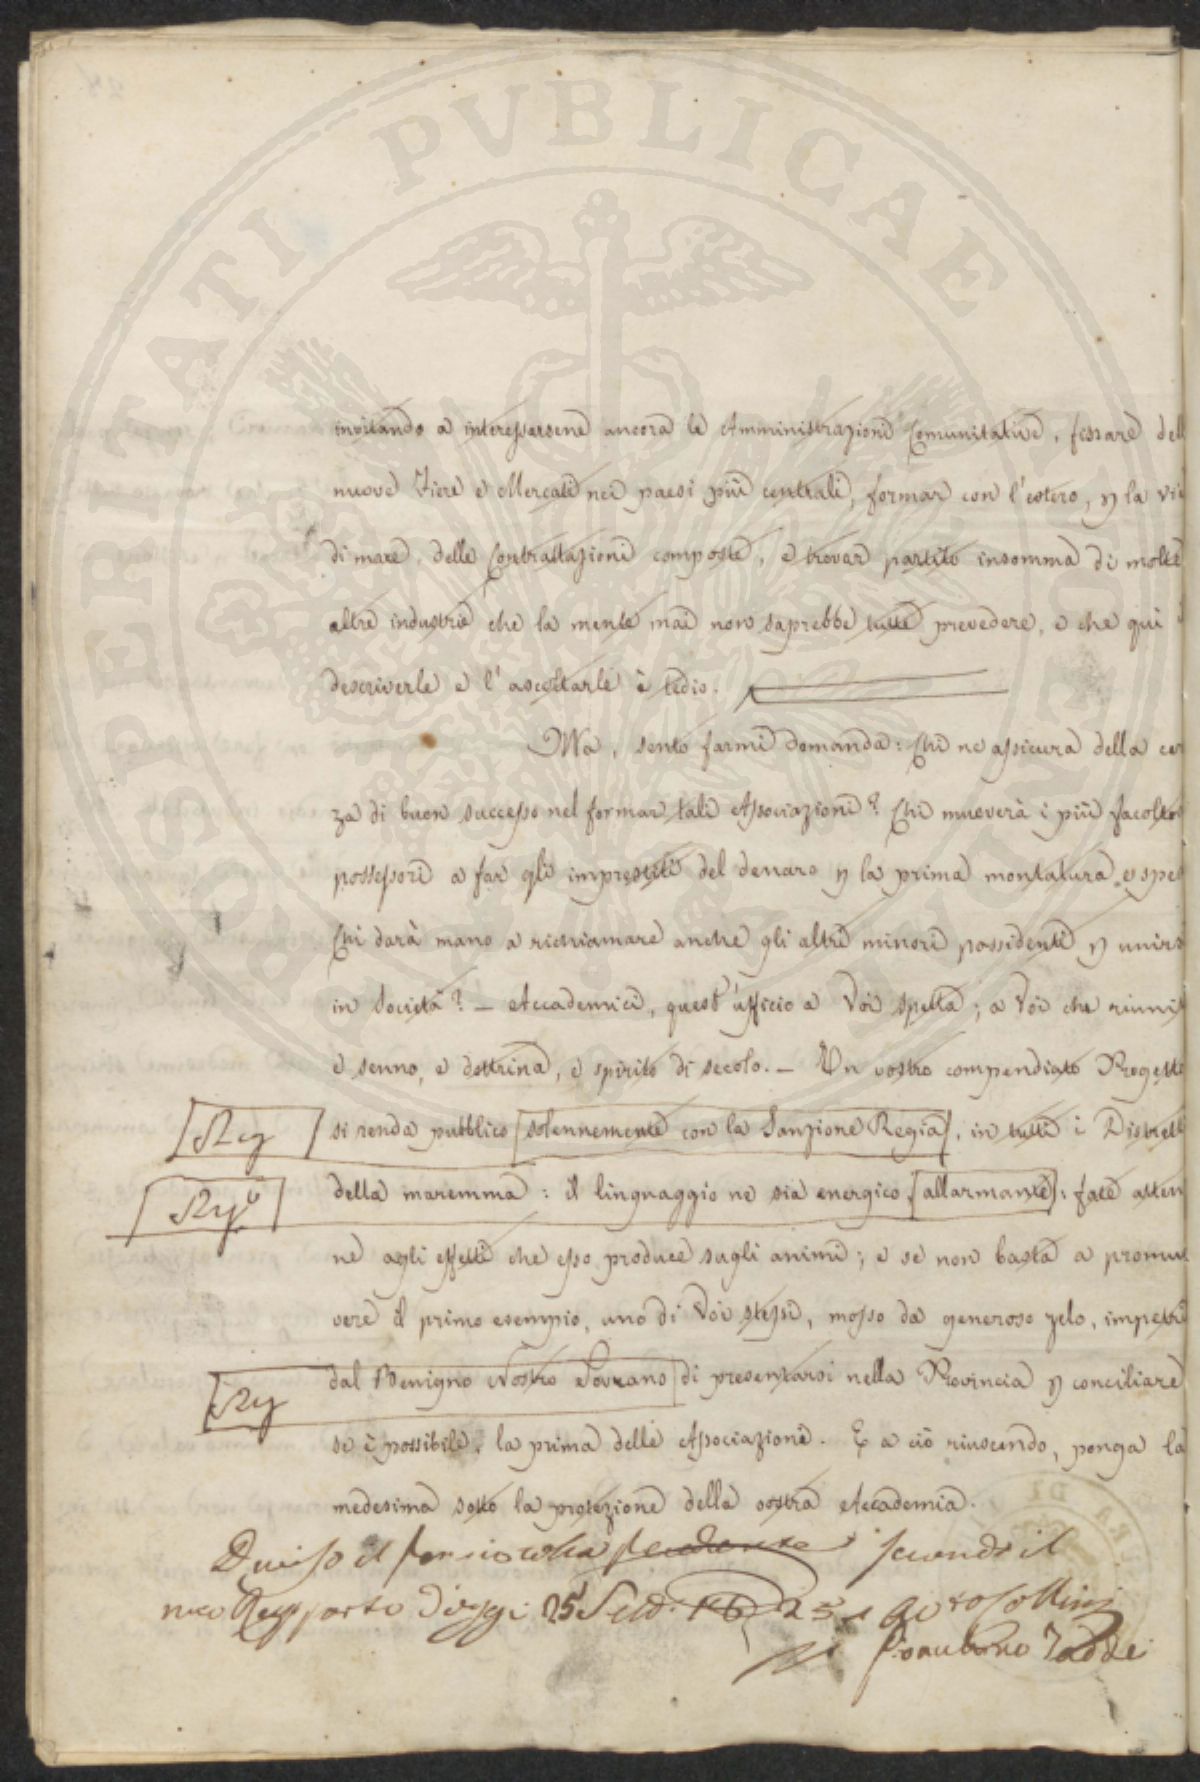 PROSPERITATI PUBLICAE
invitando a interessarsene ancora le Amministrazioni Comunitative, fissare dell
nuove Fiere e Mercati nei paesi più centrali, formar con l'estero, p la vi
di mare, delle Contrattazioni composte, e trovar partito insomma di molte
altre industrie che la mente mai non saprebbe tutte prevedere, e che qui
descriverle e l'ascoltarle è tedio.
Ma, sento farmi demanda: Chi ne assicura della cer
za di buon successo nel formar tali Associazioni? Chi muoverà i più facolto
possessori a far gli imprestiti del denaro p la prima montatura, e spe
Chi darà mano a richiamare anche gli altri minori possidenti p unirs
in Società? – Accademici, quest'ufficio a Voi spetta; a Voi che riuni
e senno, e dottrina, e spirito di secolo. – Un vostro compendiato Progetto
si renda pubblico solennemente con la Sanzione Regia, in tutti i Distrett
della maremma: il linguaggio ne sia energico, allarmante: fate atten
ne agli effetti che esso produce sugli animi; e se non basta a promu
vere il primo esempio, uno di Voi stessi, mosso da generoso zelo, impetri
dal Benigno Nostro Sovrano di presentarsi nella Provincia p conciliare
se è possibile, la prima delle Associazioni. E a ciò riuscendo, ponga la
medesima sotto la protezione della vostra Accademia.
secondo il
mio Rapporto d'oggi 25 Sett. 25
Gioacchino Taddei